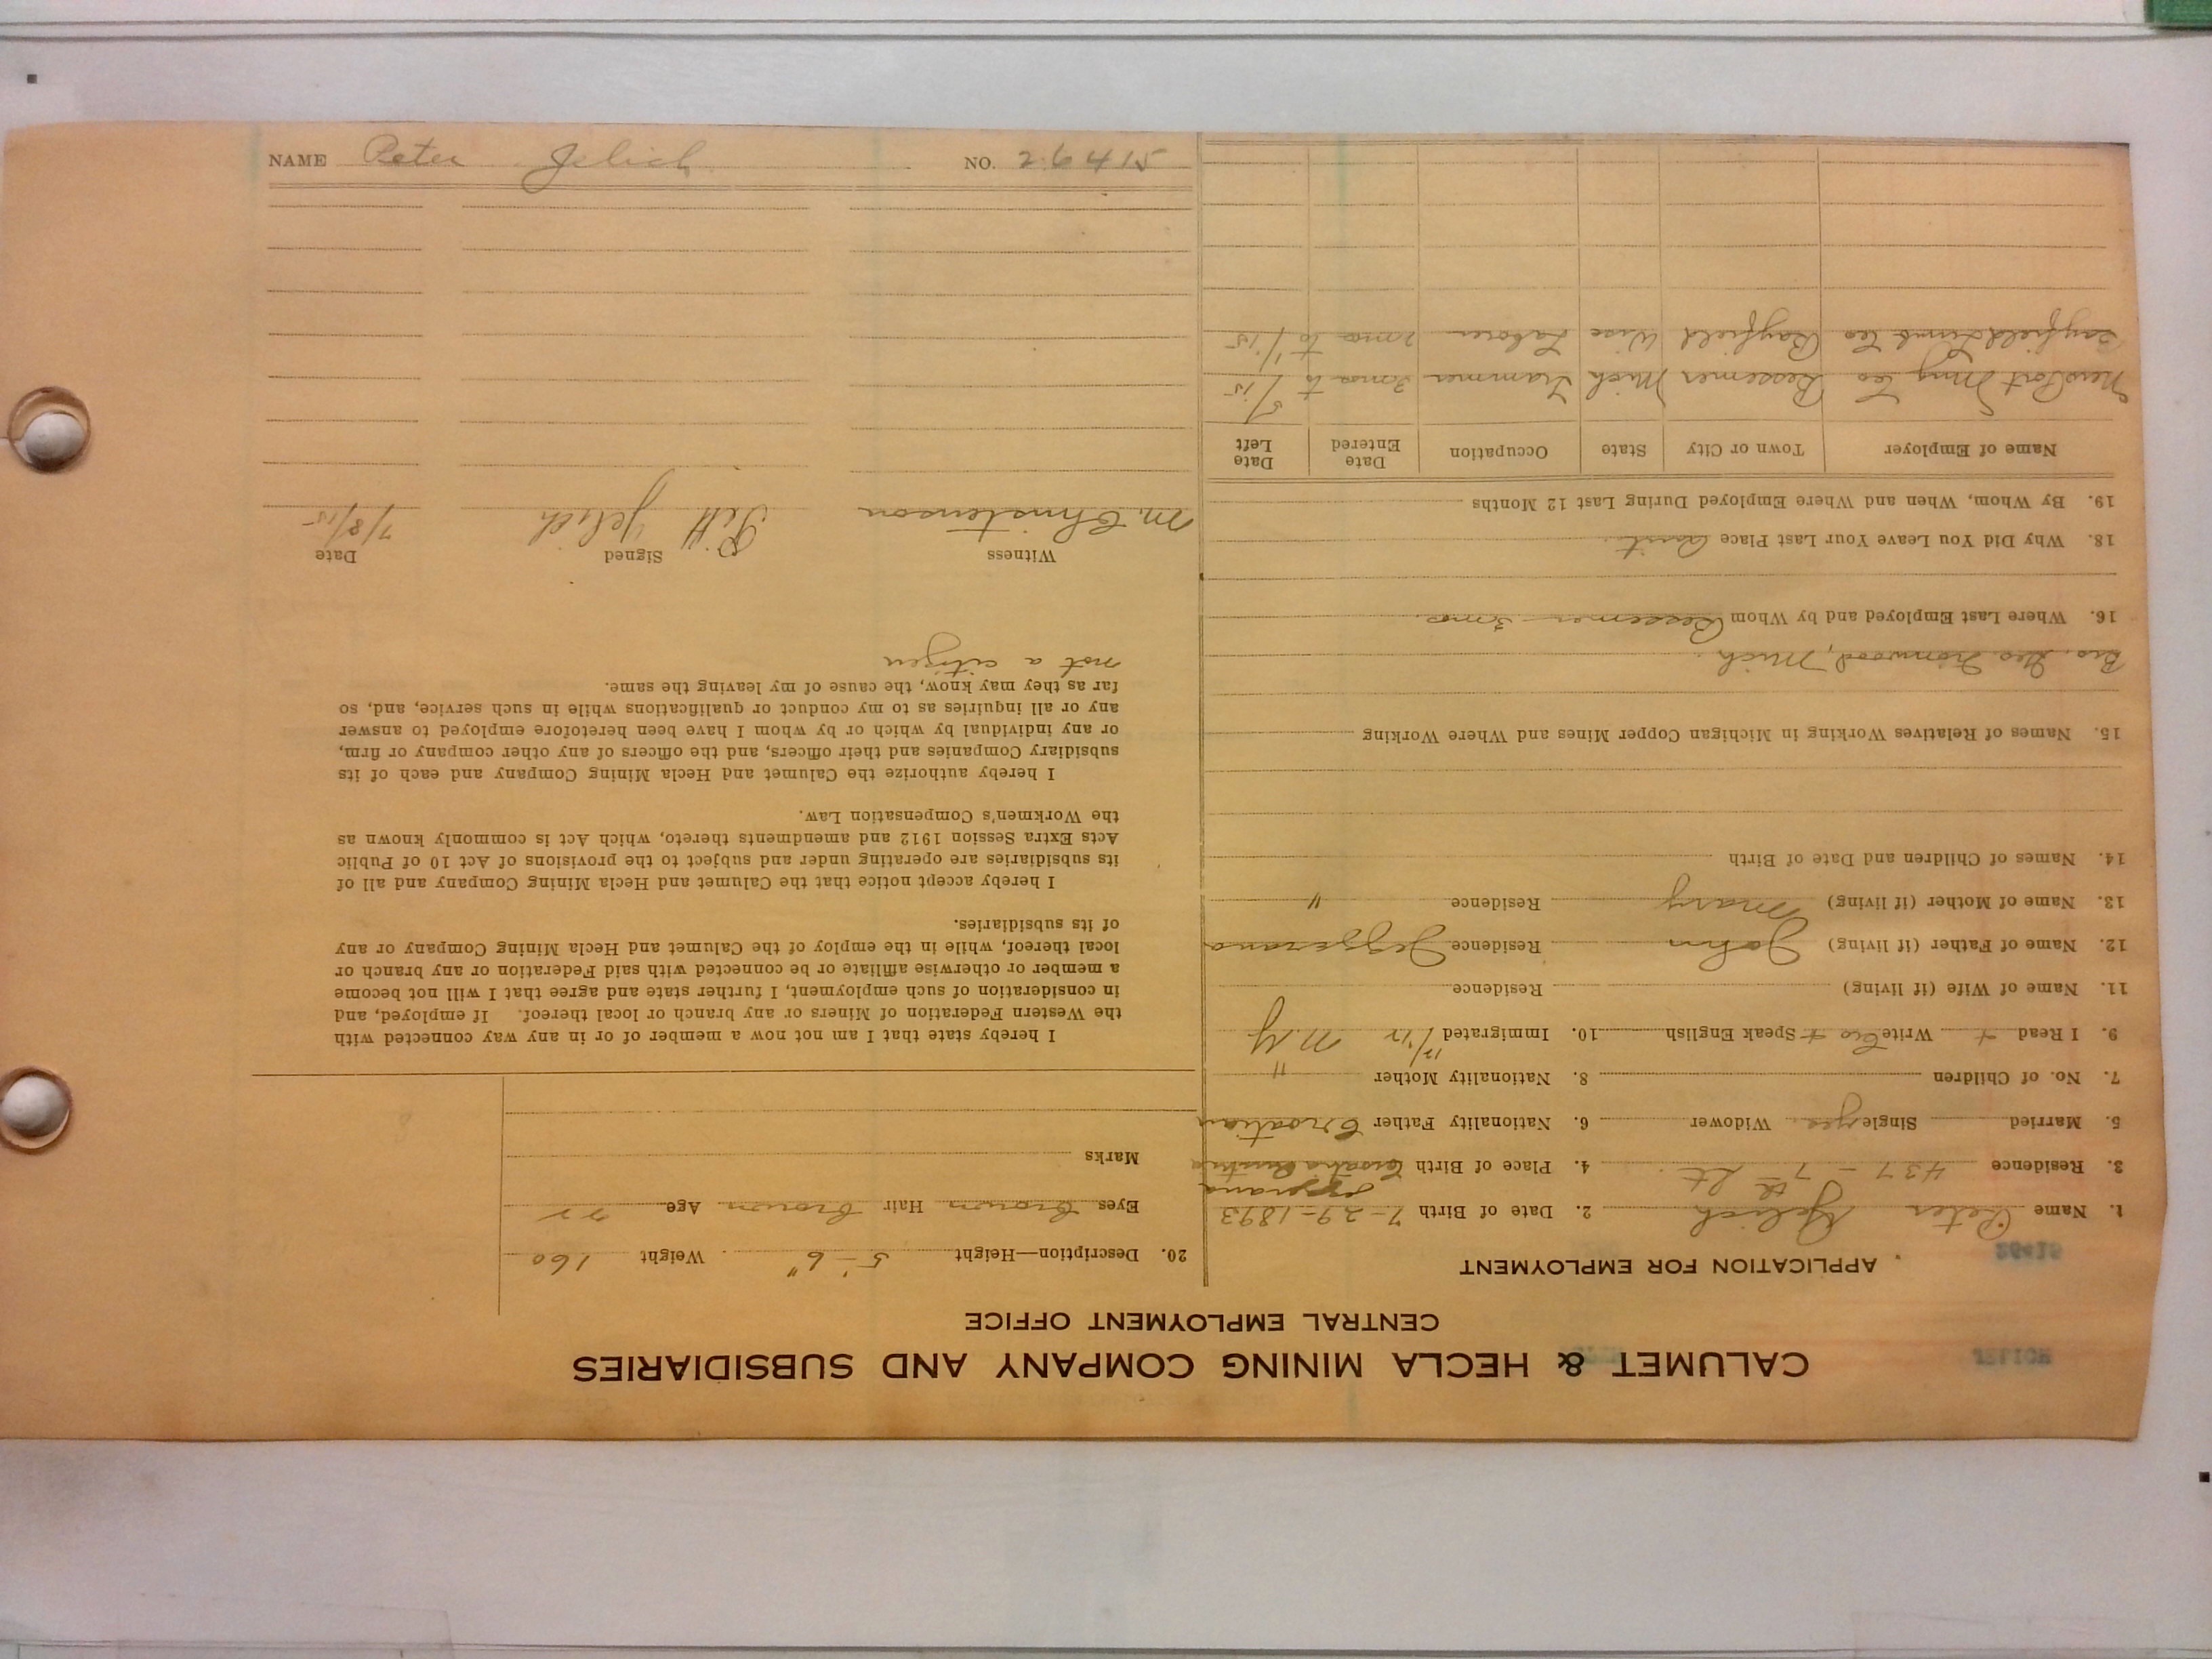 CALUMET & HECLA MINING COMPANY AND SUBSIDIARIES
CENTRAL EMPLOYMENT OFFICE
JELICH
26415
APPLICATION FOR EMPLOYMENT
1. Name Peter Jelich 2. Date of Birth 7-29-1893
3. Residence 437 - 7th St. 4. Place of Birth Croatia Austria
5. Married Single yes Widower 6. Nationality Father Croatian
7. No. of Children 8. Nationality Mother "
9. I Read + Write Cro + Speak English 10. Immigrated 12/12 N.Y
11. Name of Wife (if living) Residence
12. Name of Father (if living) John Residence
13. Name of Mother (if living) Mary Residence "
14. Names of Children and Date of Birth
15. Names of Relatives Working in Michigan Copper Mines and Where Working
Bro. Geo Ironwood, Mich.
16. Where Last Employed and by Whom Bessemer 3 mo.
18. Why Did You Leave Your Last Place Quit.
19. By Whom, When and Where Employed During Last 12 Months
Name of Employer Town or City State Occupation Date Entered Date Left
New Port Mng Co Bessemer Mich Trammer 3 mo to 5/15
Bayfield Lumb Co Bayfield Wisc Laborer 2 mo to 1/15
20. Description—Height 5'-6" Weight 160
Eyes Brown Hair Brown Age 22
Marks
I hereby state that I am not now a member of or in any way connected with
the Western Federation of Miners or any branch or local thereof. If employed, and
in consideration of such employment, I further state and agree that I will not become
a member or otherwise affiliate or be connected with said Federation or any branch or
local thereof, while in the employ of the Calumet and Hecla Mining Company or any
of its subsidiaries.
I hereby accept notice that the Calumet and Hecla Mining Company and all of
its subsidiaries are operating under and subject to the provisions of Act 10 of Public
Acts Extra Session 1912 and amendments thereto, which Act is commonly known as
the Workmen's Compensation Law.
I hereby authorize the Calumet and Hecla Mining Company and each of its
subsidiary Companies and their officers, and the officers of any other company or firm,
or any individual by which or by whom I have been heretofore employed to answer
any or all inquiries as to my conduct or qualifications while in such service, and, so
far as they may know, the cause of my leaving the same.
not a citizen
Witness Signed Date
M. Christenson Pitt Jelich 7/8/15
NAME Peter Jelich NO. 26415